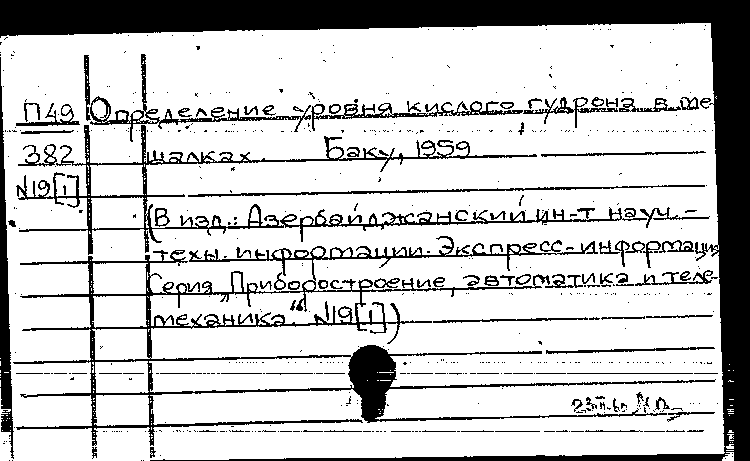 П49 Определение уровня кислого гудрона в ме-
382 шалках. Баку, 1959
N19[1]
(В изд.: Азербайджанский ин-т науч.-
техн. информации. Экспресс-информация
Серия „Приборостроение, автоматика и теле-
механика“ N19[1])
23.II.60